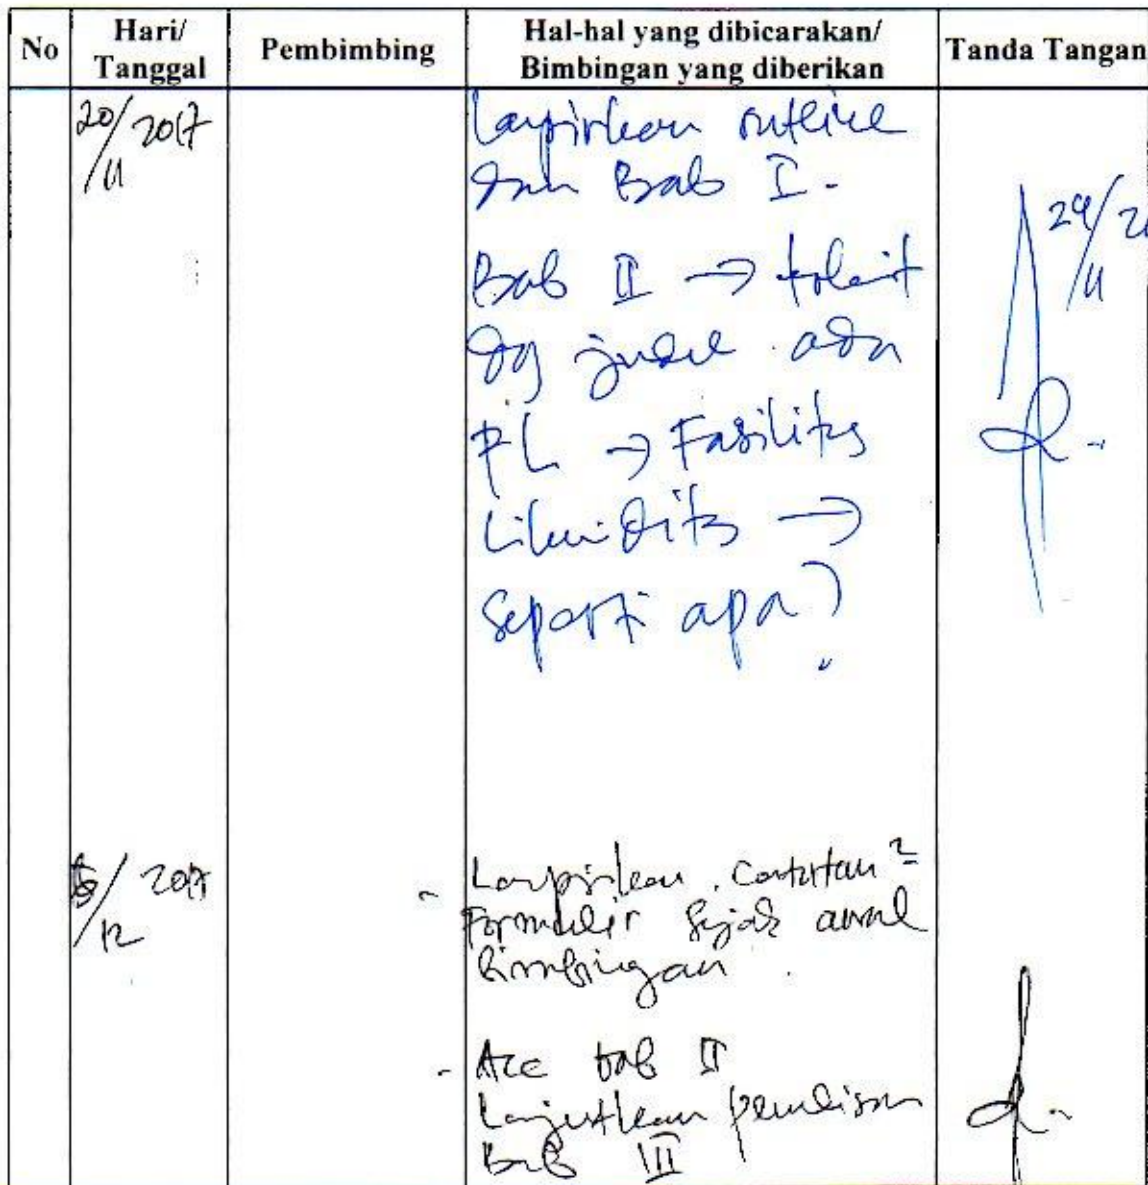 No
Hari/
Tanggal
Pembimbing
Hal-hal yang dibicarakan/
Bimbingan yang diberikan
Tanda Tangan
20/11 2017
Lampirkan outline
dan Bab I.
Bab II → terkait
dg judul ada
FL → Fasilitas
Likuiditas →
Seperti apa?
29/11
/12 2017
- Lampirkan catatan²
Formulir sejak awal
Bimbingan.
- Acc bab II
Lanjutkan penulisan
Bab III